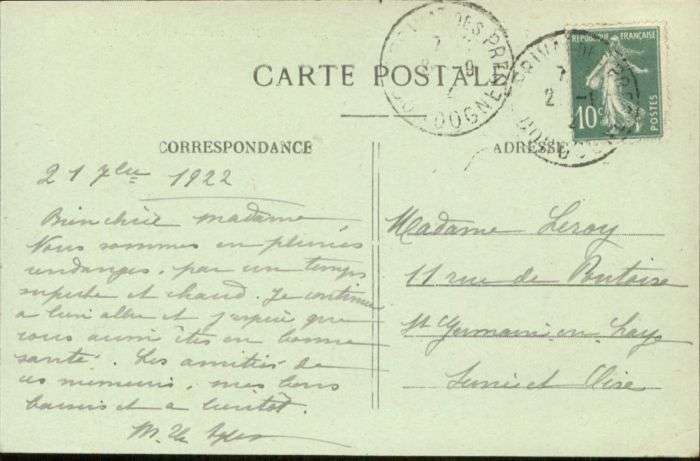 CARTE POSTALE
REPUBLIQUE FRANÇAISE
10c
POSTES
PRIVAT DES PRÉS
DORDOGNE
CORRESPONDANCE
ADRESSE
21 7bre 1922
Bien chère madame
Nous sommes en pleines
vendanges, par un temps
superbe et chaud. Je continue
a bien aller et j'espère que
vous aussi êtes en bonne
santé. Les amitiés de
ces messieurs, mes bons
baisers et a bientôt.
Madame Leroy
11 rue de Pontoise
St Germain en Lay
Seine et Oise